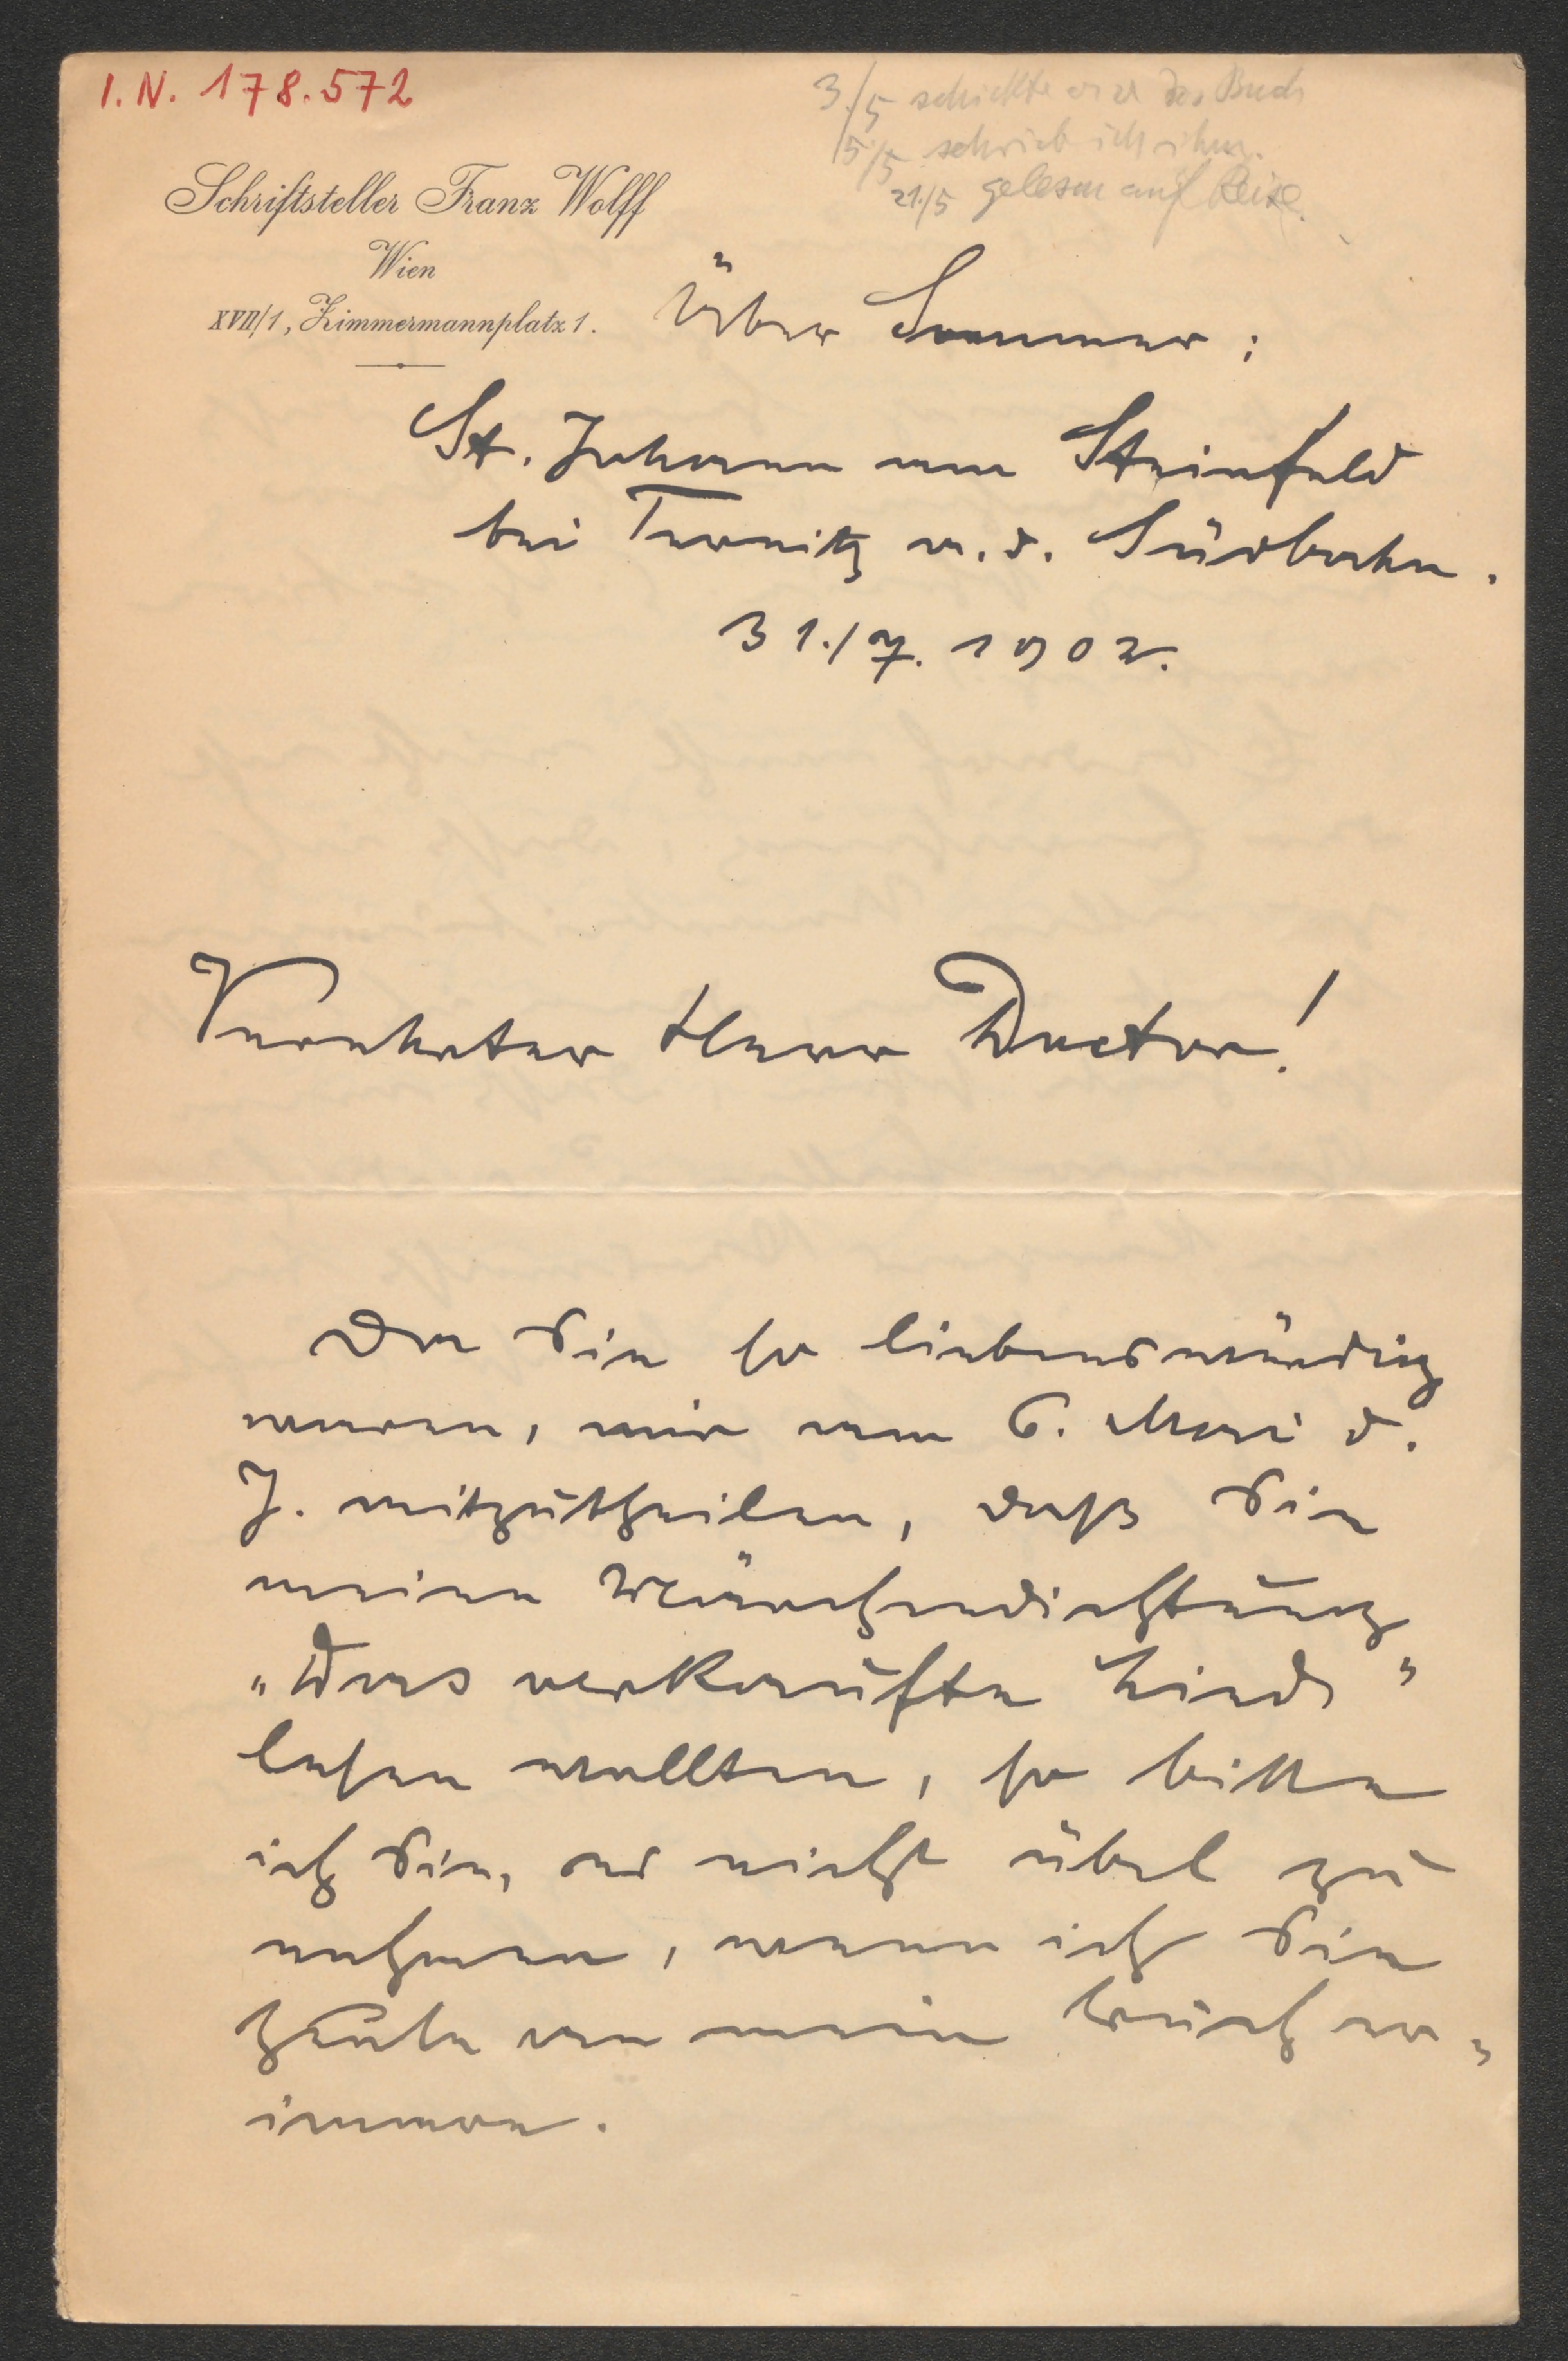 I. N. 178.572
3./5 schickte er das Buch
5/5 schrieb ich ihm.
21./5 gelesen auf Reise.
Schriftsteller Franz Wolff
Wien
XVII/1, Zimmermannplatz 1.
Über Sommer:
St. Johann am Steinfeld
bei Ternitz a. d. Südbahn.
31./7. 1902.
Verehrter Herr Doctor!
Da Sie so liebenswürdig
waren, mir am 6. Mai d.
J. mitzutheilen, daß Sie
meine Märchendichtung
„Das verkaufte Lied"
lesen wollten, so bitte
ich Sie, es nicht übel zu
nehmen, wenn ich Sie
heute an mein Buch er-
innere.